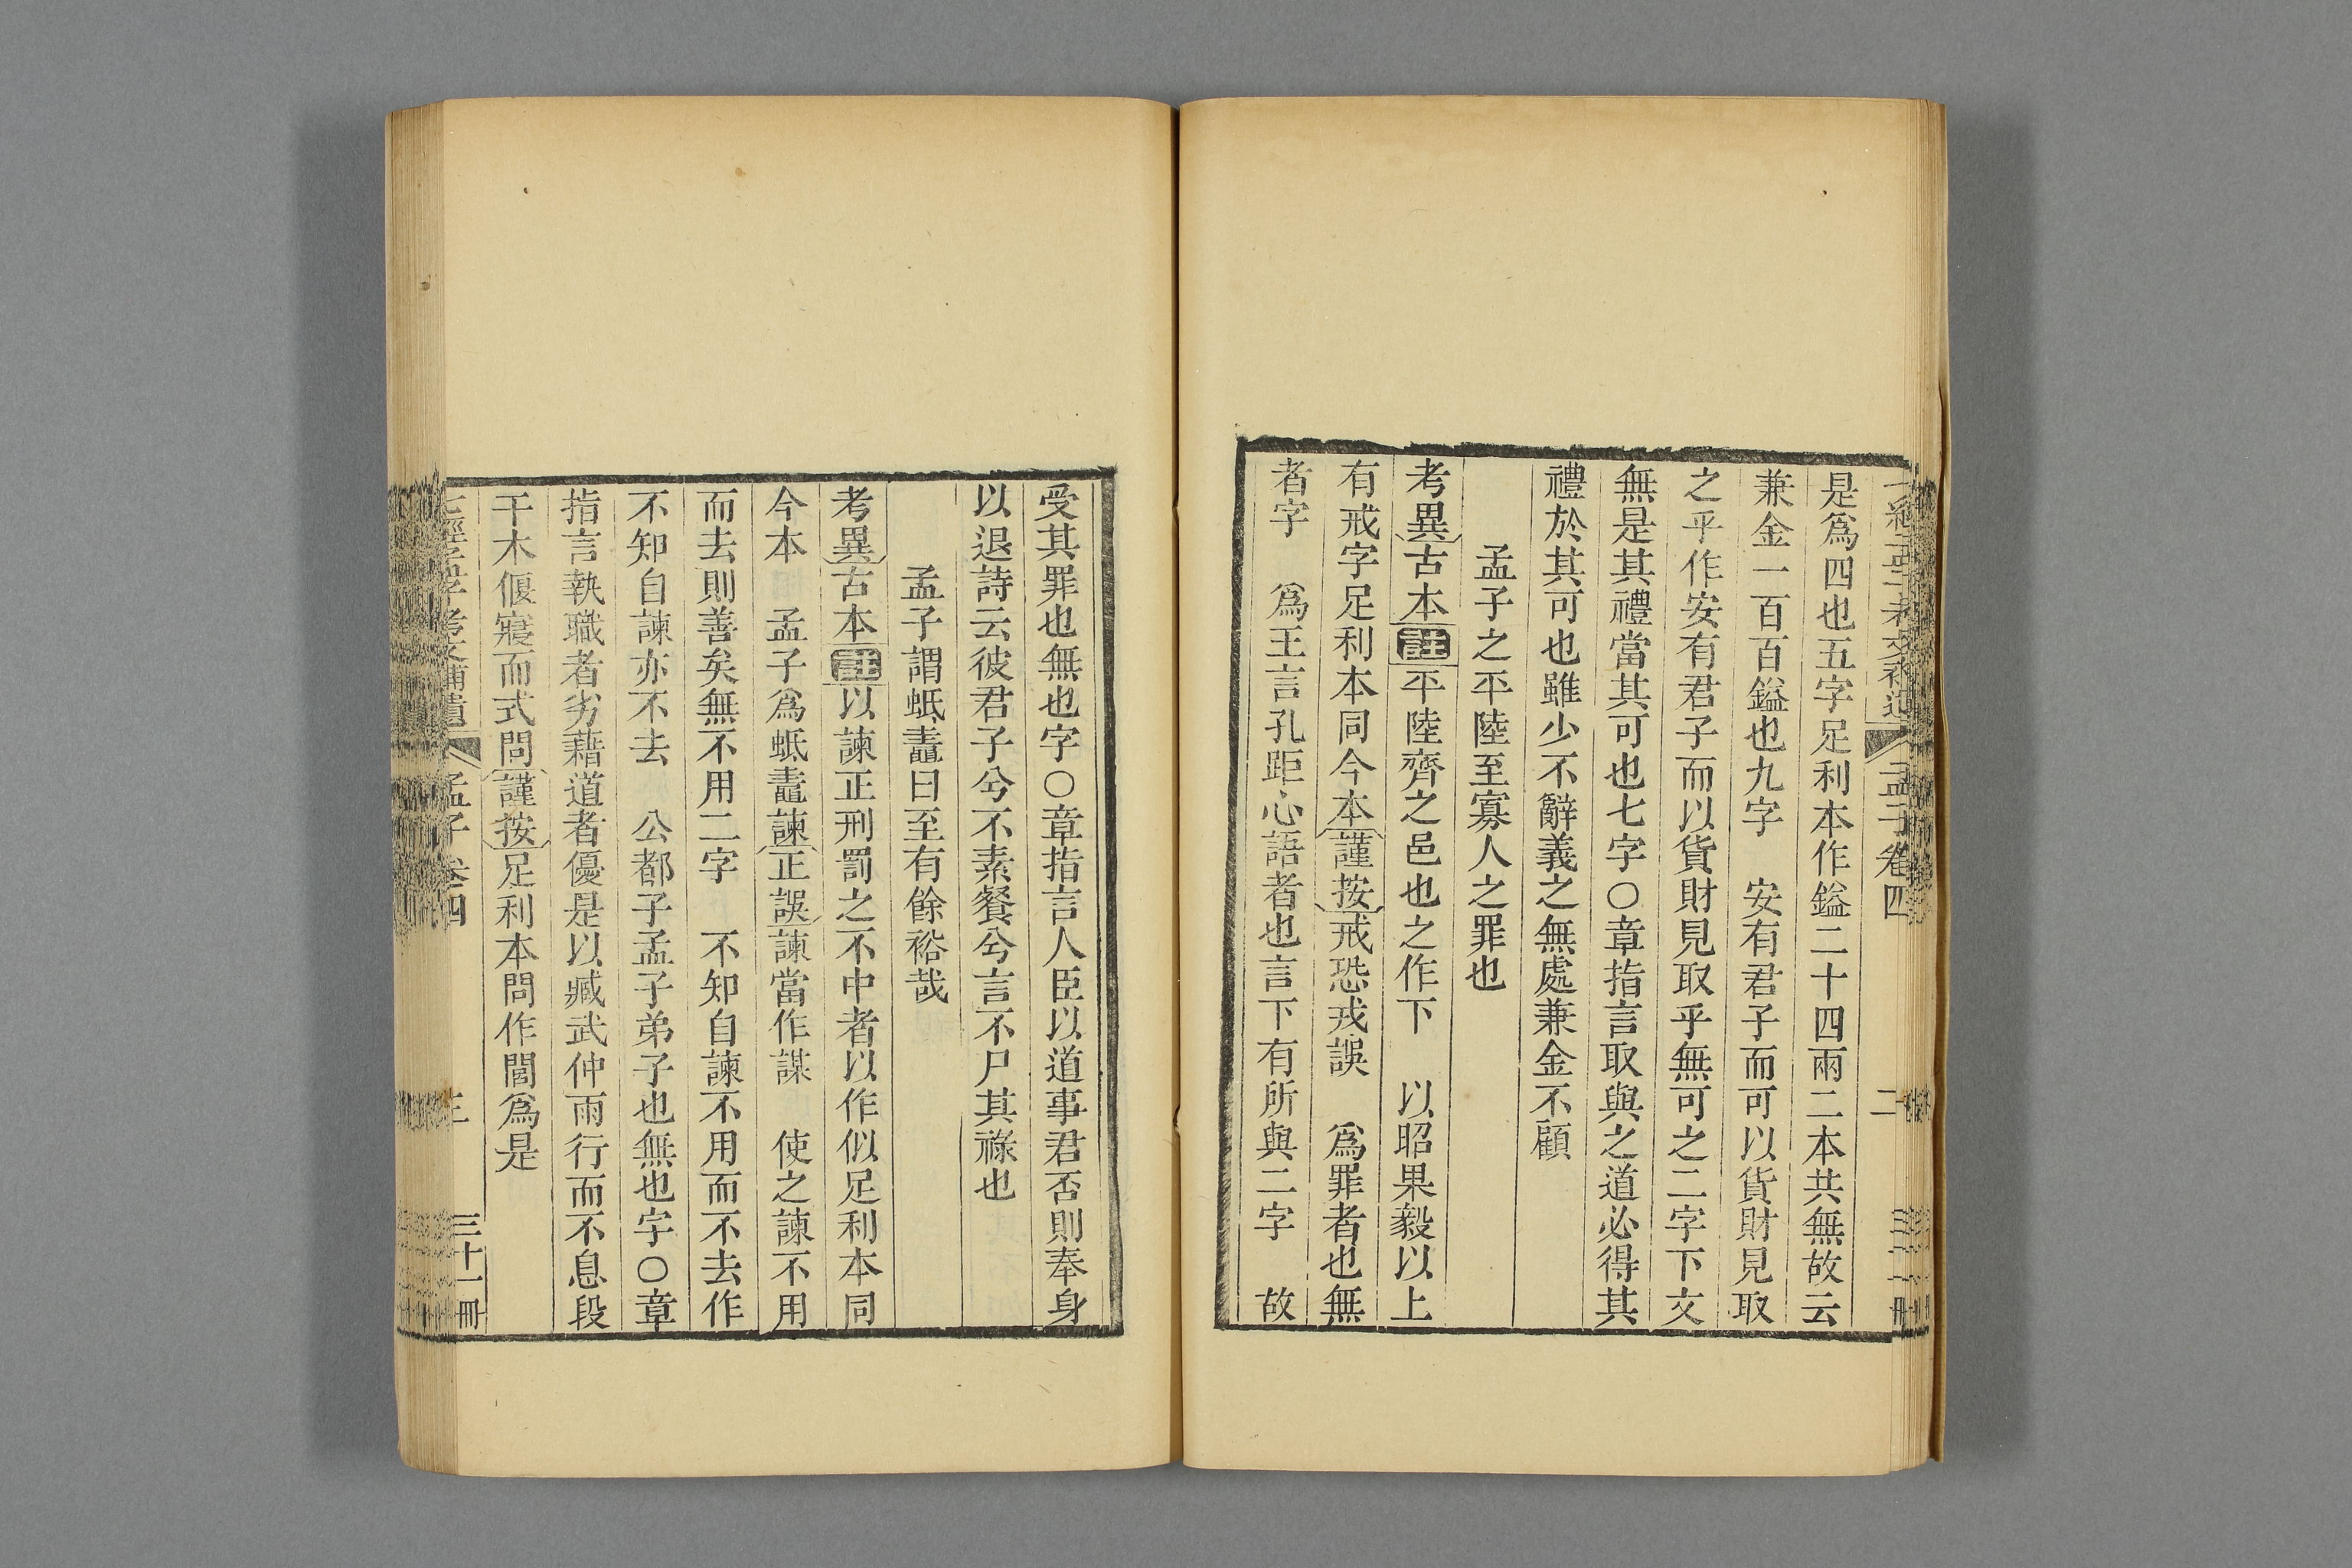 孟子卷四
二
是爲四也五字足利本作鎰二十四兩二本共無故云
兼金一百百鎰也九字 安有君子而可以貨財見取
之乎作安有君子而以貨財見取乎無可之二字下文
無是其禮當其可也七字○章指言取與之道必得其
禮於其可也雖少不辭義之無處兼金不顧
孟子之平陸至寡人之罪也
考異古本註平陸齊之邑也之作下 以昭果毅以上
有戒字足利本同今本謹按戒恐戎誤 爲罪者也無
者字 爲王言孔距心語者也言下有所與二字 故
受其罪也無也字○章指言人臣以道事君否則奉身
以退詩云彼君子兮不素餐兮言不尸其祿也
孟子謂蚳鼃曰至有餘裕哉
考異古本註以諫正刑罰之不中者以作似足利本同
今本 孟子爲蚳鼃諫正誤諫當作謀 使之諫不用
而去則善矣無不用二字 不知自諫不用而不去作
不知自諫亦不去 公都子孟子弟子也無也字○章
指言執職者劣藉道者優是以臧武仲雨行而不息段
干木偃寢而式閭謹按足利本問作閭爲是
七經孟子考文補遺 孟子卷四
三
三十一冊